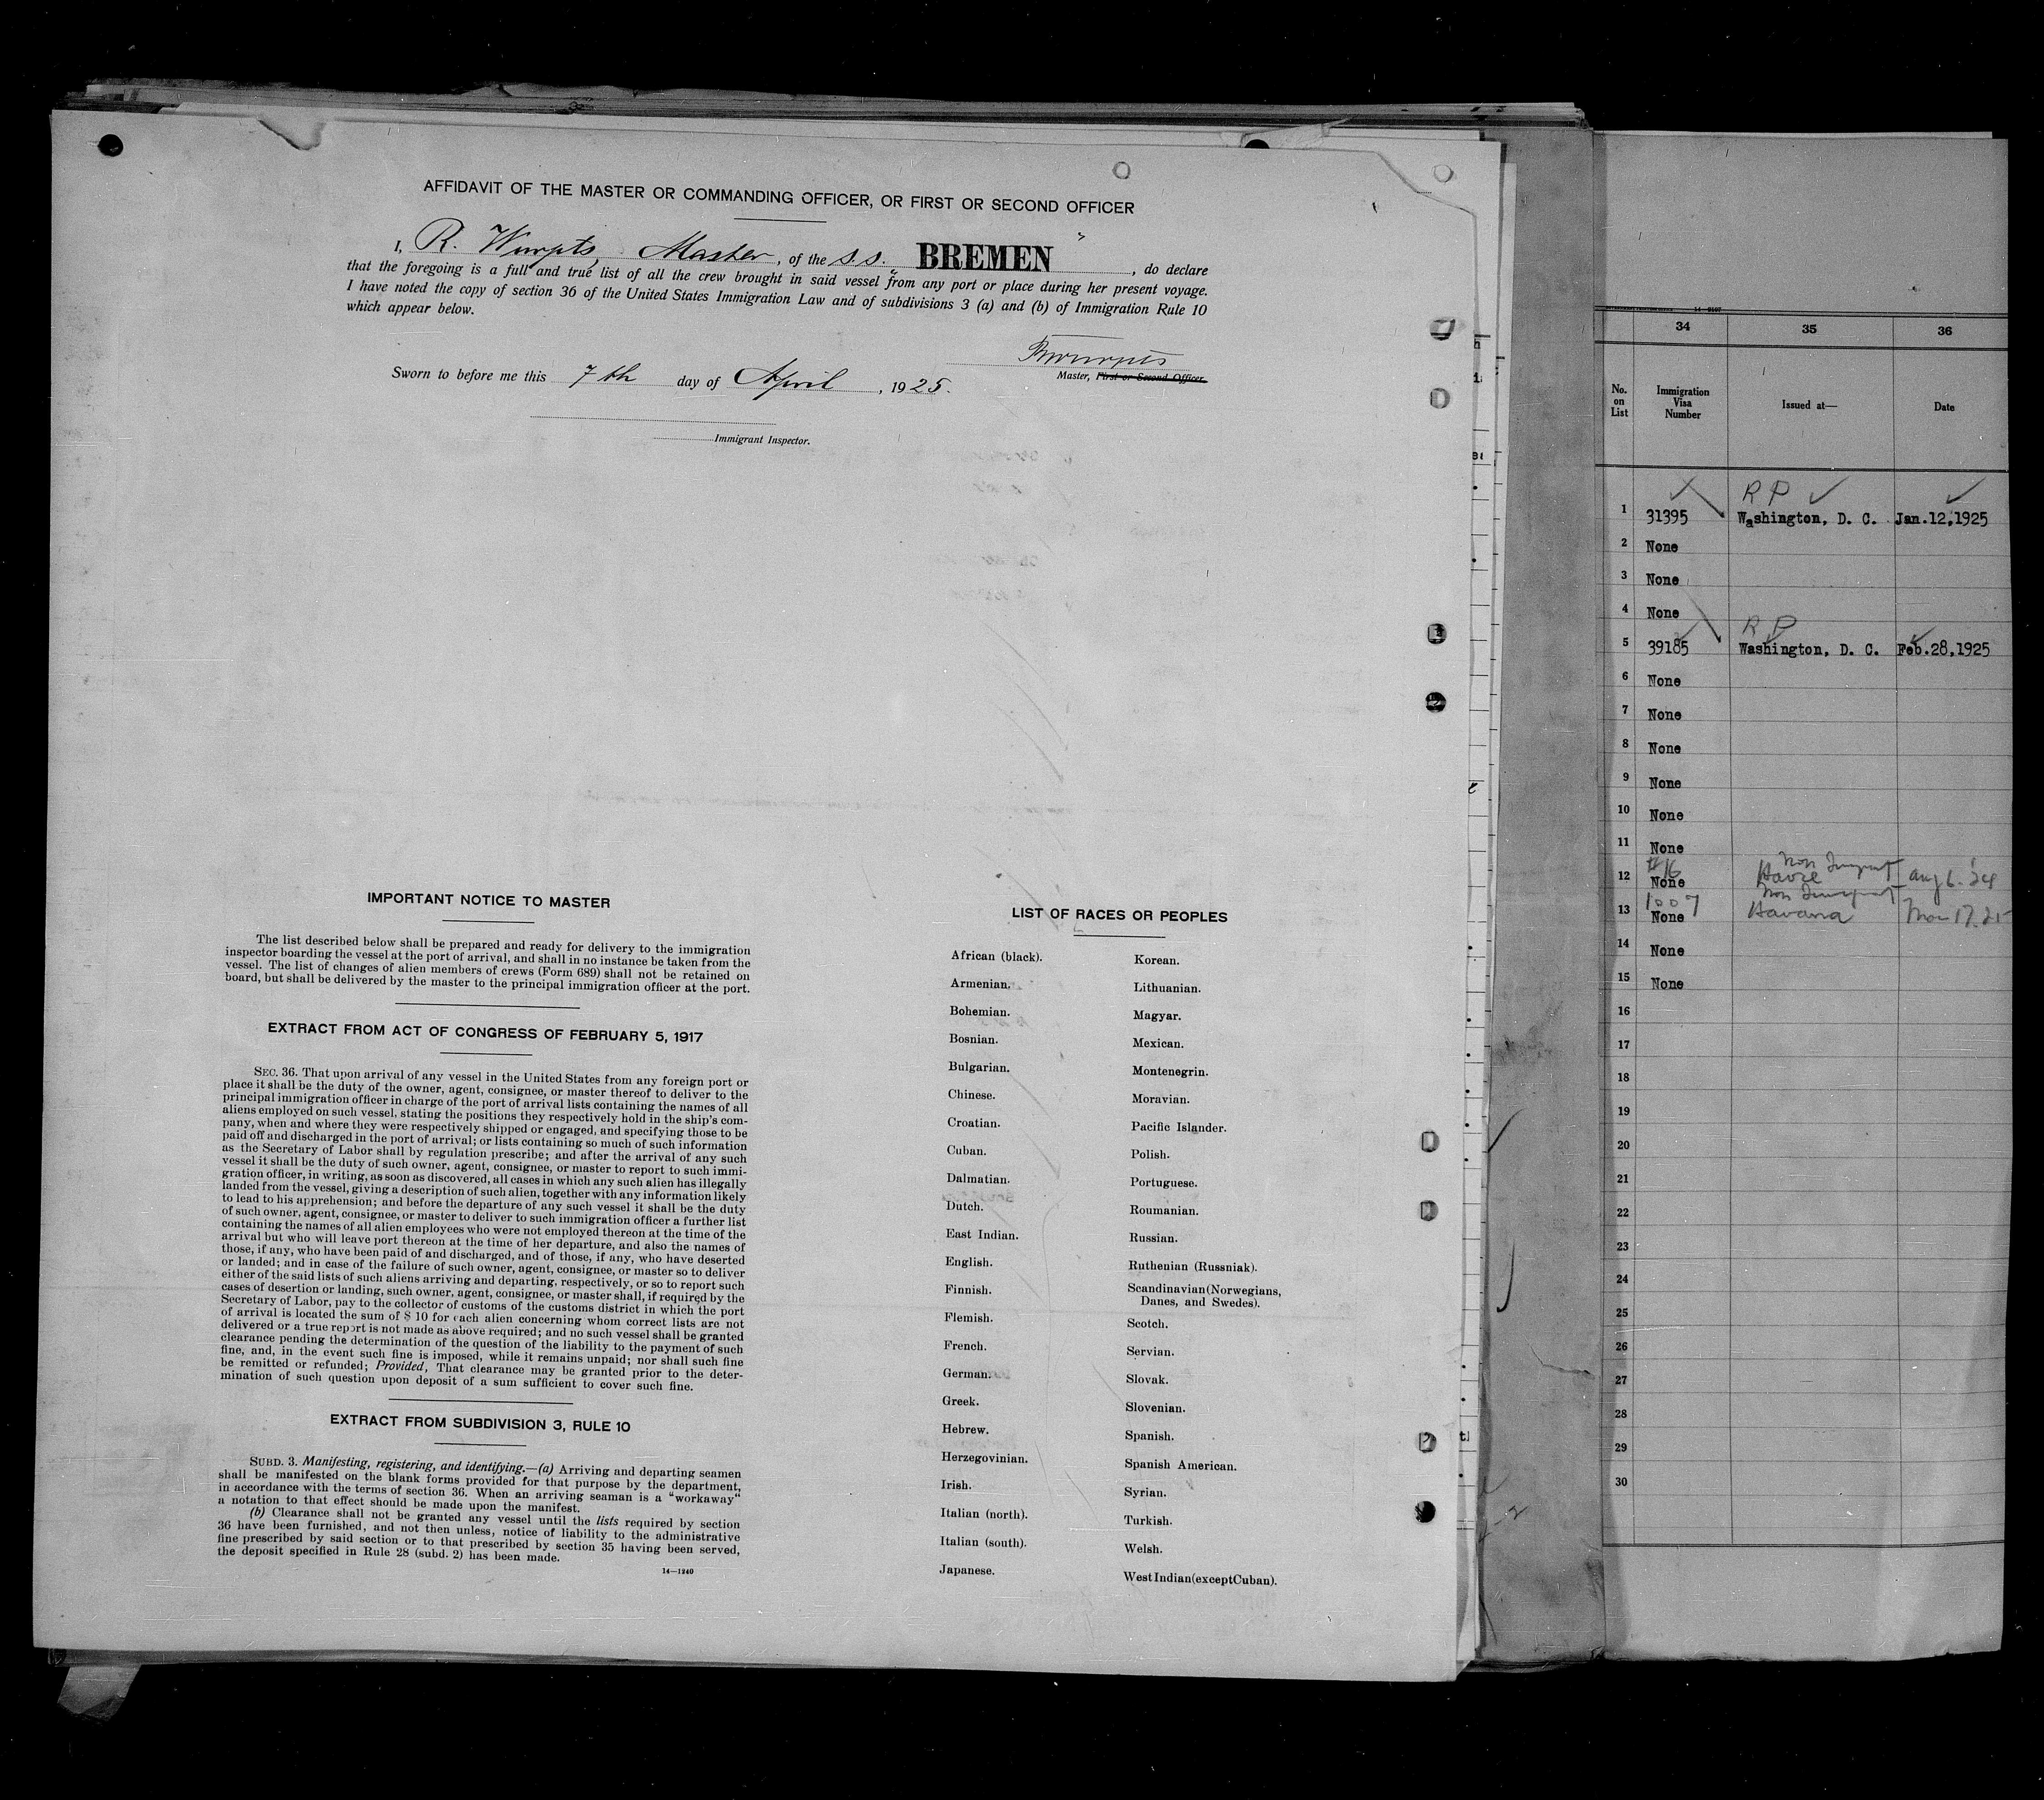 AFFIDAVIT OF THE MASTER OR COMMANDING OFFICER, OR FIRST OR SECOND OFFICER
I, R. Wurpts, Master, of the s.s. "BREMEN", do declare
that the foregoing is a full and true list of all the crew brought in said vessel from any port or place during her present voyage.
I have noted the copy of section 36 of the United States Immigration Law and of subdivisions 3 (a) and (b) of Immigration Rule 10
which appear below.
RWurpts
Sworn to before me this 7th day of April, 1925.
Master, First or Second Officer.
Immigrant Inspector.
IMPORTANT NOTICE TO MASTER
The list described below shall be prepared and ready for delivery to the immigration
inspector boarding the vessel at the port of arrival, and shall in no instance be taken from the
vessel. The list of changes of alien members of crews (Form 689) shall not be retained on
board, but shall be delivered by the master to the principal immigration officer at the port.
EXTRACT FROM ACT OF CONGRESS OF FEBRUARY 5, 1917
SEC. 36. That upon arrival of any vessel in the United States from any foreign port or
place it shall be the duty of the owner, agent, consignee, or master thereof to deliver to the
principal immigration officer in charge of the port of arrival lists containing the names of all
aliens employed on such vessel, stating the positions they respectively hold in the ship's com-
pany, when and where they were respectively shipped or engaged, and specifying those to be
paid off and discharged in the port of arrival; or lists containing so much of such information
as the Secretary of Labor shall by regulation prescribe; and after the arrival of any such
vessel it shall be the duty of such owner, agent, consignee, or master to report to such immi-
gration officer, in writing, as soon as discovered, all cases in which any such alien has illegally
landed from the vessel, giving a description of such alien, together with any information likely
to lead to his apprehension; and before the departure of any such vessel it shall be the duty
of such owner, agent, consignee, or master to deliver to such immigration officer a further list
containing the names of all alien employees who were not employed thereon at the time of the
arrival but who will leave port thereon at the time of her departure, and also the names of
those, if any, who have been paid of and discharged, and of those, if any, who have deserted
or landed; and in case of the failure of such owner, agent, consignee, or master so to deliver
either of the said lists of such aliens arriving and departing, respectively, or so to report such
cases of desertion or landing, such owner, agent, consignee, or master shall, if required by the
Secretary of Labor, pay to the collector of customs of the customs district in which the port
of arrival is located the sum of $ 10 for each alien concerning whom correct lists are not
delivered or a true report is not made as above required; and no such vessel shall be granted
clearance pending the determination of the question of the liability to the payment of such
fine, and, in the event such fine is imposed, while it remains unpaid; nor shall such fine
be remitted or refunded; Provided, That clearance may be granted prior to the deter-
mination of such question upon deposit of a sum sufficient to cover such fine.
EXTRACT FROM SUBDIVISION 3, RULE 10
SUBD. 3. Manifesting, registering, and identifying.—(a) Arriving and departing seamen
shall be manifested on the blank forms provided for that purpose by the department,
in accordance with the terms of section 36. When an arriving seaman is a "workaway"
a notation to that effect should be made upon the manifest.
(b) Clearance shall not be granted any vessel until the lists required by section
36 have been furnished, and not then unless, notice of liability to the administrative
fine prescribed by said section or to that prescribed by section 35 having been served,
the deposit specified in Rule 28 (subd. 2) has been made.
14—1240
LIST OF RACES OR PEOPLES
African (black).
Armenian.
Bohemian.
Bosnian.
Bulgarian.
Chinese.
Croatian.
Cuban.
Dalmatian.
Dutch.
East Indian.
English.
Finnish.
Flemish.
French.
German.
Greek.
Hebrew.
Herzegovinian.
Irish.
Italian (north).
Italian (south).
Japanese.
Korean.
Lithuanian.
Magyar.
Mexican.
Montenegrin.
Moravian.
Pacific Islander.
Polish.
Portuguese.
Roumanian.
Russian.
Ruthenian (Russniak).
Scandinavian (Norwegians,
Danes, and Swedes).
Scotch.
Servian.
Slovak.
Slovenian.
Spanish.
Spanish American.
Syrian.
Turkish.
Welsh.
West Indian (except Cuban).
34 35 36
No. on List Immigration Visa Number Issued at— Date
R P
1 31395 Washington, D. C. Jan.12,1925
2 None
3 None
4 None
R P
5 39185 Washington, D. C. Feb.28,1925
6 None
7 None
8 None
9 None
10 None
11 None
#16 Non
12 None Havre Aug 6. 24
1007 Non
13 None Havana 17.25
14 None
15 None
16
17
18
19
20
21
22
23
24
25
26
27
28
29
30